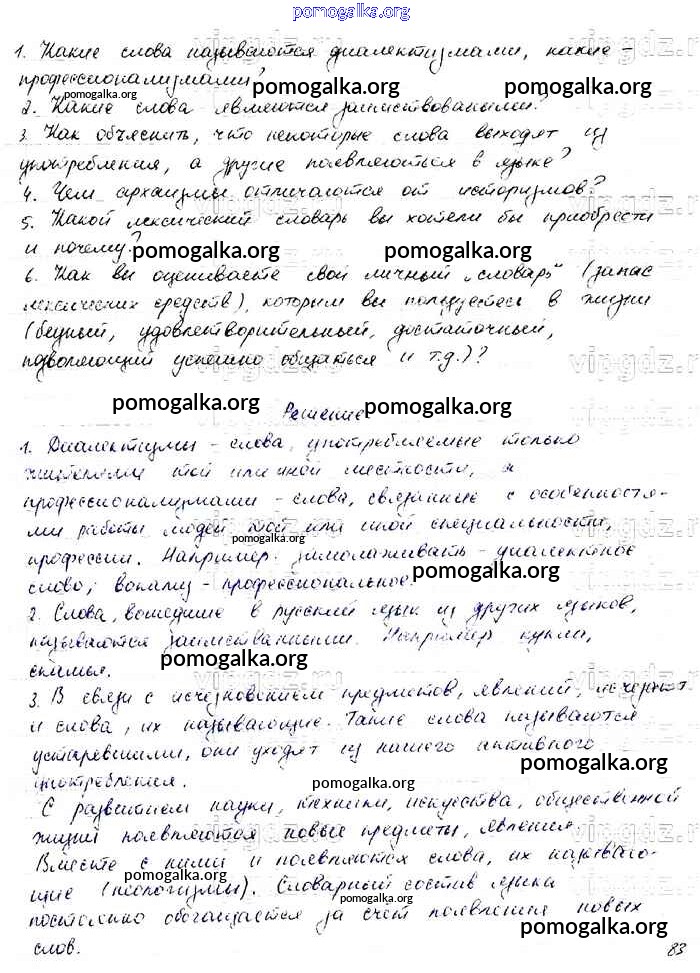 pomogalka.org
1. Какие слова называются диалектизмами, какие -
профессионализмами?
pomogalka.org
2. Какие слова являются заимствоваными?
3. Как объяснить, что некоторые слова выходят из
употребления, а другие появляються в языке?
4. Чем архаизмы отличаются от историзмов?
5. Какой лексический словарь вы хотели бы приобрести
и почему?
pomogalka.org
6. Как вы оцениваете свой личный „словарь" (запас
лексических средств), которым вы пользуетесь в жизни
(бедный, удовлетворительный, достаточный,
позволяющий успешно общаться и т.д.)?
pomogalka.org
Решение
1. Диалектизмы - слова, употребляемые только
жителями той или иной местности, а
профессионализмами - слова, связанные с особенностя-
ми работы людей той или иной специальности,
профессии. Например: замолаживать - диалектное
слово; - профессиональное.
2. Слова, вошедшие в русский язык из других языков,
называются заимствованными. Например кухня,
скамья.
pomogalka.org
3. В связи с исчезновением предметов, явлений, исчезают
и слова, их называющие. Такие слова называются
устаревшими, они уходят из нашего активного
употребления.
С развитием науки, техники, искусства, общественной
жизни появляются новые предметы, явления.
Вместе с ними и появляются слова, их называю-
щие (неологизмы). Словарный состав языка
постоянно обогащается за счет появления новых
слов.
83
vipgdz.ru